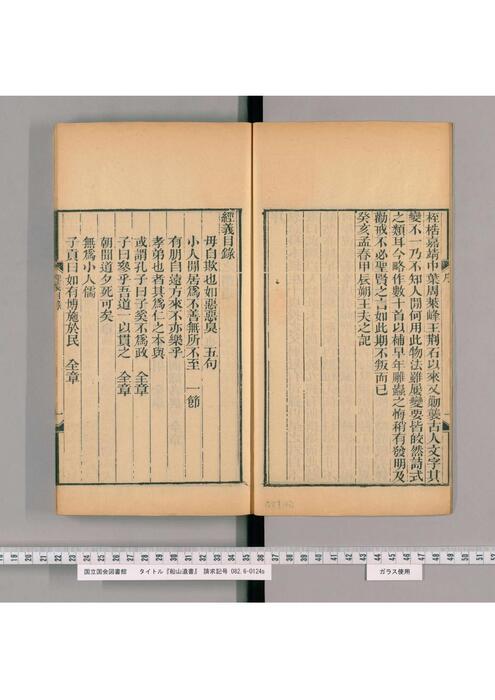 桎梏嘉靖中葉周萊峰王荊石以來又勦襲古人文字其
變不一乃不知人閒何用此物法雖屢變要皆皎然詩式
之類耳今略作數十首以補早年雕蟲之悔稍有發明及
勸戒不必聖賢之言如此期不叛而已
癸亥孟春甲辰朔王夫之記
序
經義目錄
毋自欺也如惡惡臭　五句
小人閒居爲不善無所不至　一節
有朋自遠方來不亦樂乎
孝弟也者其爲仁之本與
或謂孔子曰子奚不爲政　全章
子曰參乎吾道一以貫之　全章
朝聞道夕死可矣
無爲小人儒
子貢曰如有博施於民　全章
国立国会図書館　タイトル『船山遺書』　請求記号 082.6-0124s
ガラス使用